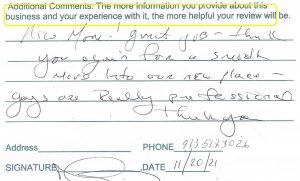 Additional Comments: The more information you provide about this
business and your experience with it, the more helpful your review will be.
Nice Move! great job - thank
you again for a smooth
move into our new place -
guys are Really professional
thank you
Address PHONE 9135173026
SIGNATURE DATE 11/20/21